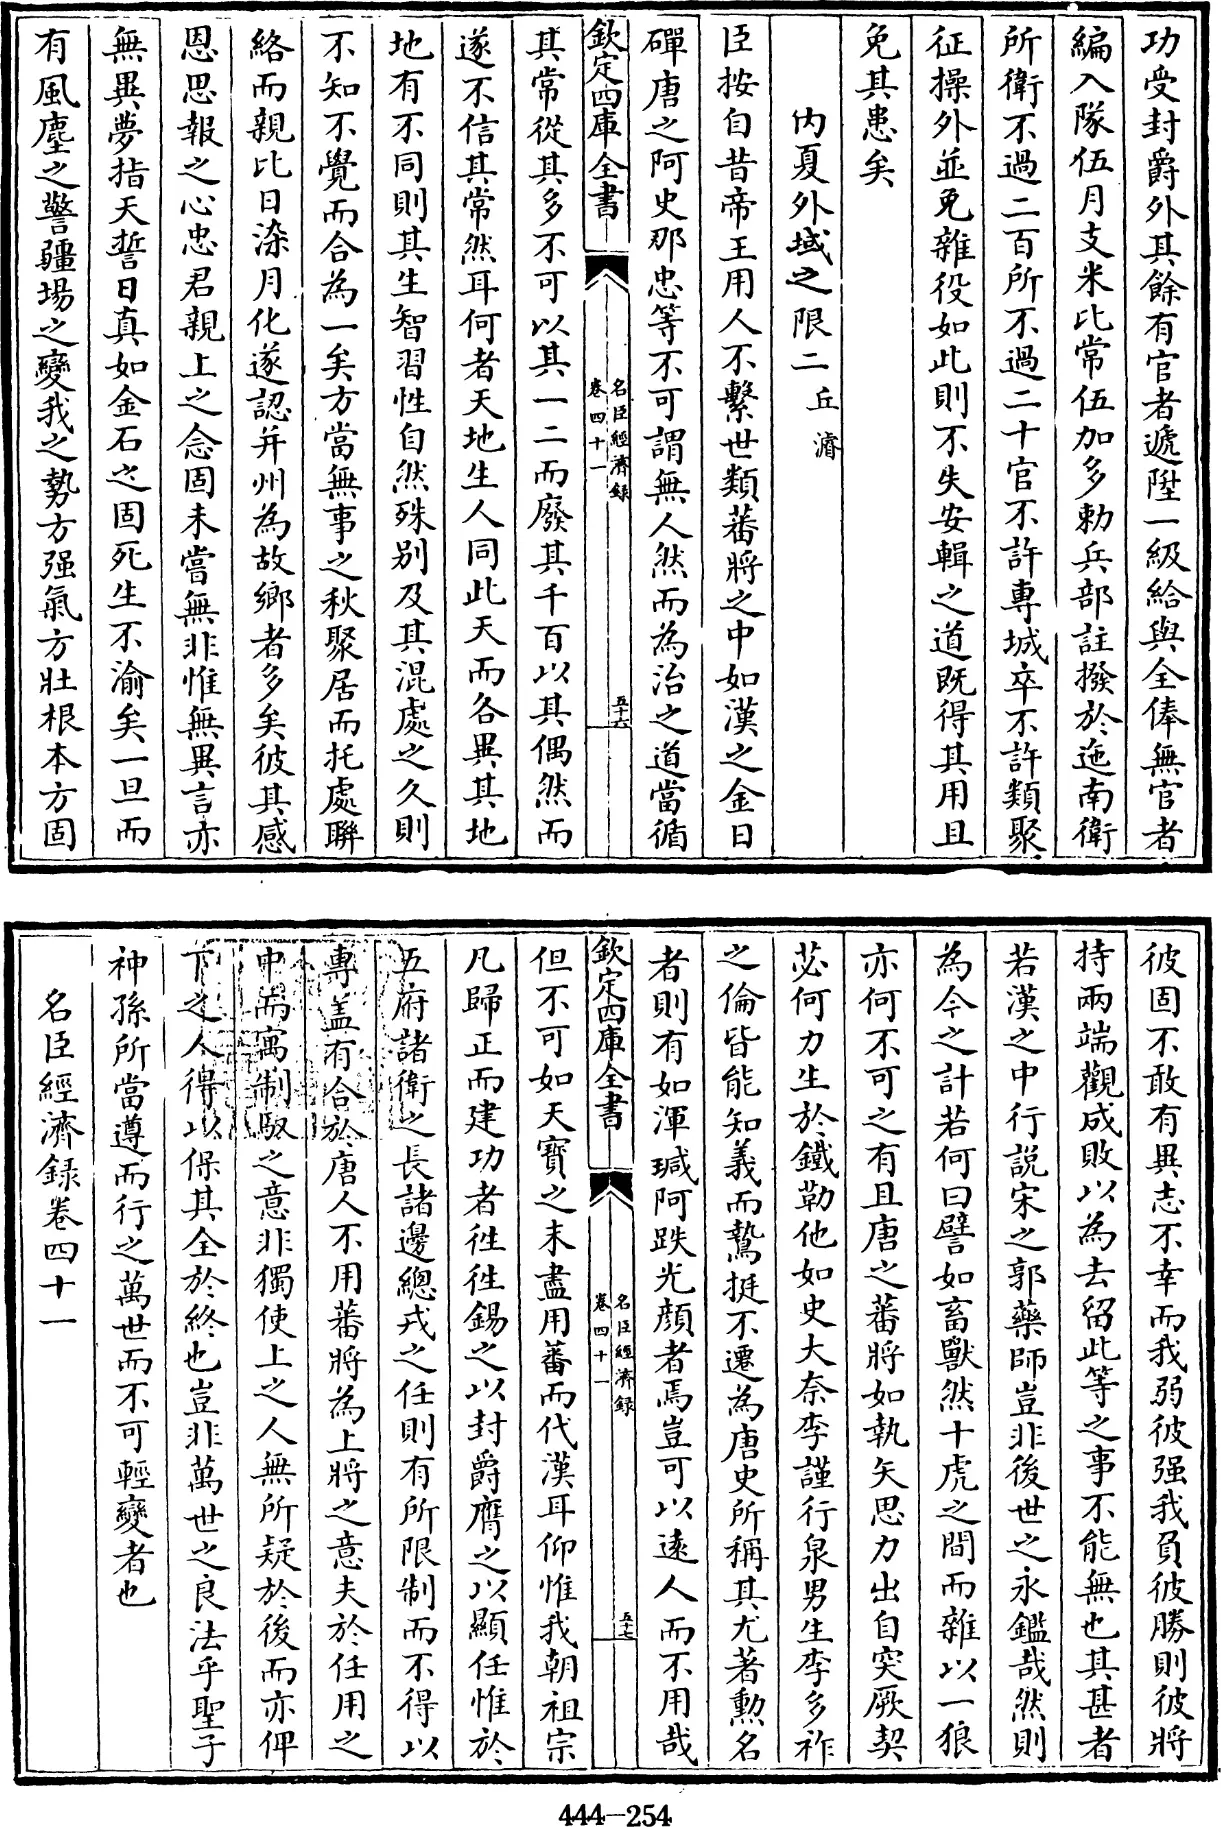 功受封爵外其餘有官者遞陞一級給與全俸無官者
編入隊伍月支米比常伍加多勅兵部註撥於迤南衛
所衛不過二百所不過二十官不許專城卒不許類聚
征操外並免雜役如此則不失安輯之道既得其用且
免其患矣
内夏外域之限二 丘濬
臣按自昔帝王用人不繫世類蕃將之中如漢之金日
磾唐之阿史那忠等不可謂無人然而為治之道當循
欽定四庫全書
名臣經濟録
卷四十一
五十六
其常從其多不可以其一二而廢其千百以其偶然而
遂不信其常然耳何者天地生人同此天而各異其地
地有不同則其生智習性自然殊别及其混處之久則
不知不覺而合為一矣方當無事之秋聚居而托處聯
絡而親比日染月化遂認并州為故鄉者多矣彼其感
恩思報之心忠君親上之念固未嘗無非惟無異言亦
無異夢指天誓日真如金石之固死生不渝矣一旦而
有風塵之警疆場之變我之勢方强氣方壯根本方固
彼固不敢有異志不幸而我弱彼强我負彼勝則彼將
持兩端觀成敗以為去留此等之事不能無也其甚者
若漢之中行説宋之郭藥師豈非後世之永鑑哉然則
為今之計若何曰譬如畜獸然十虎之間而雜以一狼
亦何不可之有且唐之蕃將如執矢思力出自突厥契
苾何力生於鐵勒他如史大奈李謹行泉男生李多祚
之倫皆能知義而鷙挺不遷為唐史所稱其尤著勲名
者則有如渾瑊阿跌光顔者焉豈可以遠人而不用哉
欽定四庫全書
名臣經濟録
卷四十一
五十七
但不可如天寶之末盡用蕃而代漢耳仰惟我朝祖宗
凡歸正而建功者徃徃錫之以封爵膺之以顯任惟於
五府諸衛之長諸邊總戎之任則有所限制而不得以
專盖有合於唐人不用蕃將為上將之意夫於任用之
中而寓制馭之意非獨使上之人無所疑於後而亦俾
下之人得以保其全於終也豈非萬世之良法乎聖子
神孫所當遵而行之萬世而不可輕變者也
名臣經濟録卷四十一
444-254